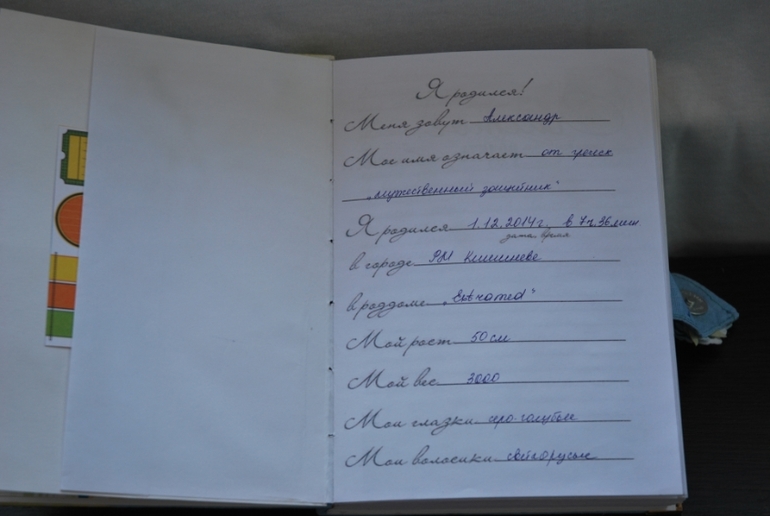 Я родился!
Меня зовут Александр
Мое имя означает от греческ
„мужественный защитник"
Я родился 1.12.2014г. в 7ч.36мин
дата, время
в городе РМ Кишиневе
в роддоме „Eutromed"
Мой рост 50см
Мой вес 3000
Мои глазки серо голубые
Мои волосики светлорусые